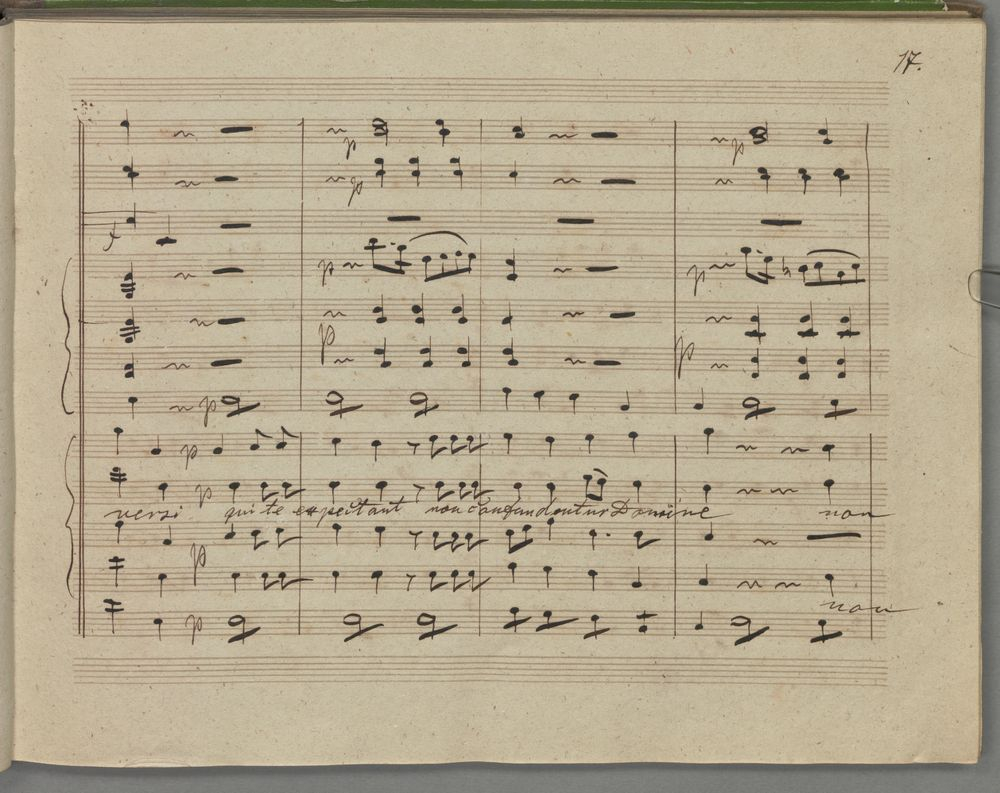 17.
p p
p
f
p p
p p
p
p
p
versi qui te expectant non confundentur Domine non
p
non
p